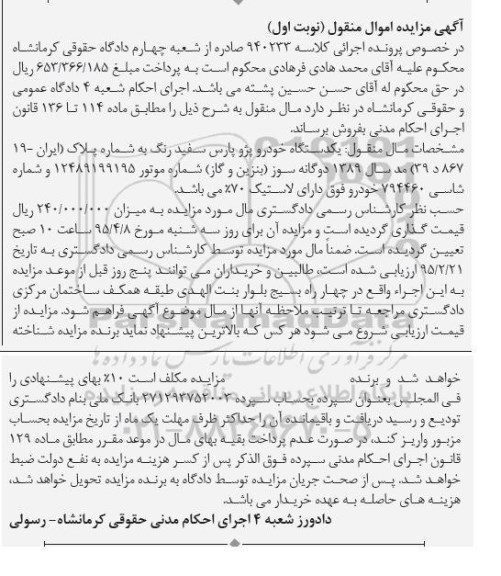 آگهی مزایده اموال منقول (نوبت اول)
در خصوص پرونده اجرائی کلاسه ۹۴۰۲۳۳ صادره از شعبه چهارم دادگاه حقوقی کرمانشاه
محکوم علیه آقای محمد هادی فرهادی محکوم است به پرداخت مبلغ ۶۵۳/۳۶۶/۱۸۵ ریال
در حق محکوم له آقای حسن حسین پشته می باشد. اجرای احکام شعبه ۴ دادگاه عمومی
و حقوقی کرمانشاه در نظر دارد مال منقول به شرح ذیل را مطابق ماده ۱۱۴ تا ۱۳۶ قانون
اجرای احکام مدنی بفروش برساند.
مشخصات مال منقول: یکدستگاه خودرو پژو پارس سفید رنگ به شماره پلاک (ایران ۱۹-
۸۶۷ د ۳۹) مد سال ۱۳۸۹ دوگانه سوز (بنزین و گاز) شماره موتور ۱۲۴۸۹۱۹۹۱۹۵ و شماره
شاسی ۷۹۴۴۶۰ خودرو فوق دارای لاستیک ۷۰٪ می باشد.
حسب نظر کارشناس رسمی دادگستری مال مورد مزایده به میزان ۲۴۰/۰۰۰/۰۰۰ ریال
قیمت گذاری گردیده است و مزایده آن برای روز سه شنبه مورخ ۹۵/۴/۸ ساعت ۱۰ صبح
تعیین گردیده است. ضمناً مال مورد مزایده توسط کارشناس رسمی دادگستری به تاریخ
۹۵/۲/۲۱ ارزیابی شده است، طالبین و خریداران می توانند پنج روز قبل از موعد مزایده
به این اجراء واقع در چهار راه بسیج بلوار بنت الهدی طبقه همکف ساختمان مرکزی
دادگستری مراجعه تا ترتیب ملاحظه آنها از مال موضوع آگهی فراهم شود. مزایده از
قیمت ارزیابی شروع می شود هر کس که بالاترین پیشنهاد نماید برنده مزایده شناخته
خواهد شد و برنده مزایده مکلف است ۱۰٪ بهای پیشنهادی را
فی المجلس بعنوان سپرده بحساب سپرده ۲۱۷۱۲۹۳۷۵۲۰۰۳ بانک ملی بنام دادگستری
تودیع و رسید دریافت و باقیمانده آن را حداکثر ظرف مهلت یک ماه از تاریخ مزایده بحساب
مزبور واریز کند، در صورت عدم پرداخت بقیه بهای مال در موعد مقرر مطابق ماده ۱۲۹
قانون اجرای احکام مدنی سپرده فوق الذکر پس از کسر هزینه مزایده به نفع دولت ضبط
خواهد شد. پس از صحت جریان مزایده توسط دادگاه به برنده مزایده تحویل خواهد شد،
هزینه های حاصله به عهده خریدار می باشد.
دادورز شعبه ۴ اجرای احکام مدنی حقوقی کرمانشاه- رسولی